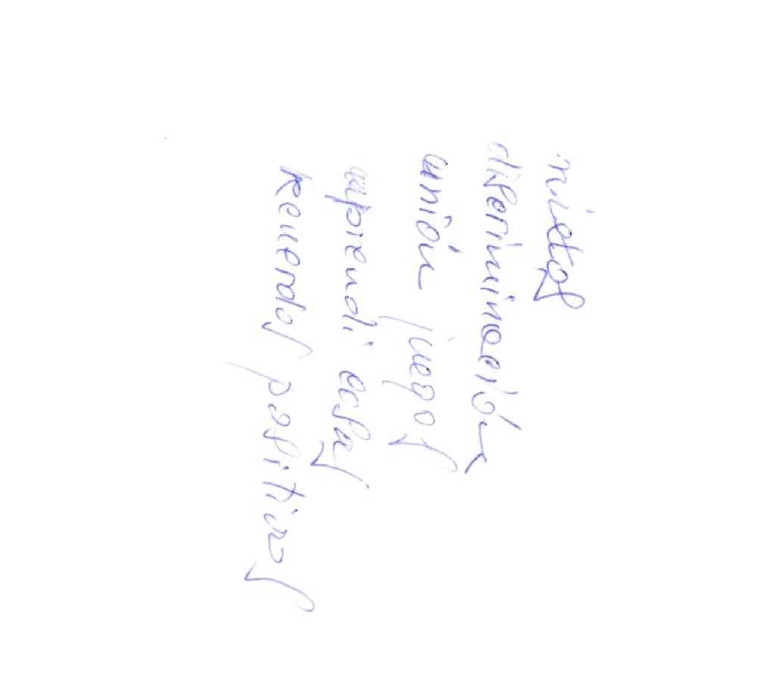 nietos
discriminación
unión juegos
aprendi cosas
recuerdos positivos